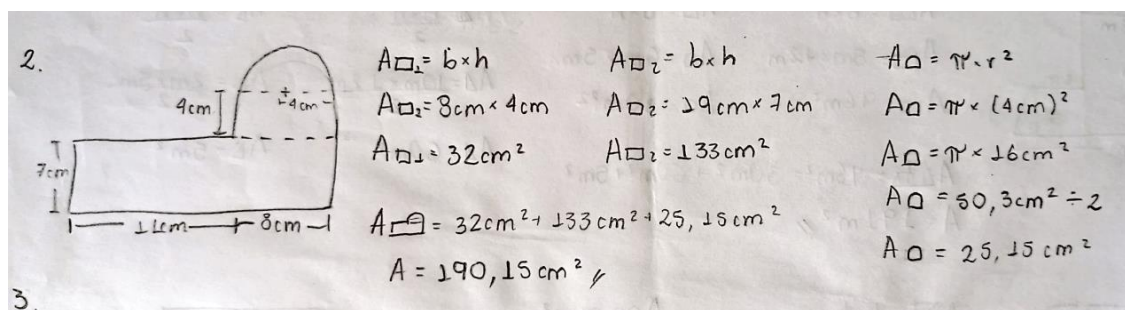 2.
9cm
4cm
7cm
11cm
8cm
A▭₁= b×h
A▭₁= 8cm × 4cm
A▭₁= 32cm²
A▭₂= b×h
A▭₂= 19cm × 7cm
A▭₂= 133cm²
A⌓ = π·r²
A⌓ = π × (4cm)²
A⌓ = π × 16cm²
A⌓ = 50,3cm² ÷ 2
A⌓ = 25,15 cm²
A = 32cm² + 133 cm² + 25,15cm²
A = 190,15 cm²
3.